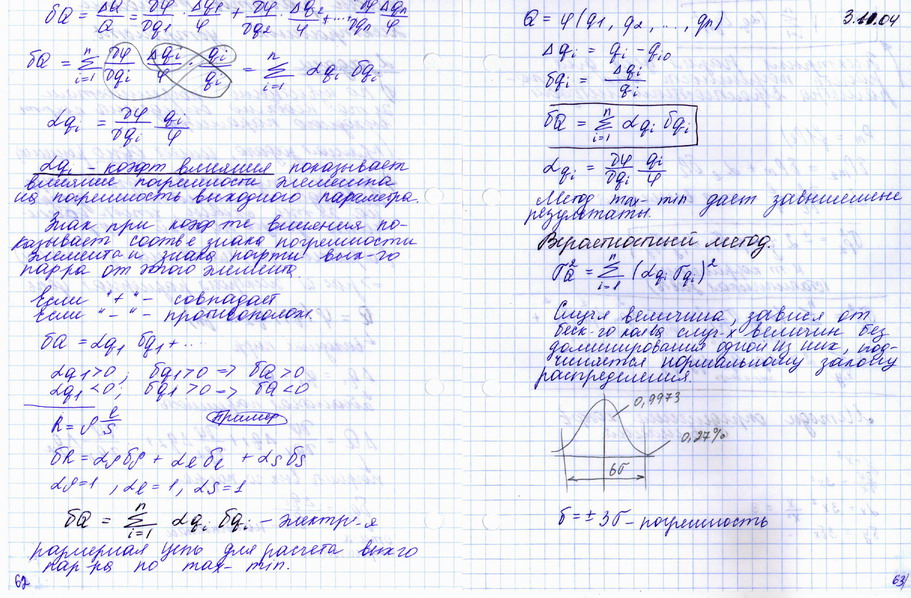 δQ = ΔQ/Q = ∂φ/∂q1 · Δq1/φ + ∂φ/∂q2 · Δq2/φ + ... ∂φ/∂qn Δqn/φ
δQ = Σ(i=1..n) ∂φ/∂qi Δqi/φ · qi/qi = Σ(i=1..n) αqi δqi
αqi = ∂φ/∂qi qi/φ
αqi - коэфт влияния показывает
влияние погрешности элемента
на погрешность выходного параметра.
Знак при коэф-те влияния по-
казывает соотв-е знака погрешности
элемента и знака погрти вых-го
пар-ра от этого элемента.
Если "+" - совпадает
Если "-" - противополож.
δQ = αq1 δq1 + ...
αq1>0; δq1>0 => δQ>0
αq1<0; δq1>0 => δQ<0
R = ρ ℓ/S Пример
δR = αρ δρ + αℓ δℓ + αS δS
αρ=1, αℓ=1, αS=1
δQ = Σ(i=1..n) αqi δqi - электр-я
размерная цепь для расчета вых-го
пар-ра по max-min.
62
Q = φ(q1, q2, ..., qn) 3.11.04
Δqi = qi - qi0
δqi = Δqi/qi
δQ = Σ(i=1..n) αqi δqi
αqi = ∂φ/∂qi qi/φ
Метод max-min дает завышенные
результаты.
Вероятностный метод.
σQ² = Σ(i=1..n) (αqi σqi)²
Случ-я величина, завися от
беск-го кол-ва случ-х величин без
доминирования одной из них, под-
чиняется нормальному закону
распределения.
0,9973
0,27%
6σ
δ = ±3σ - погрешность
63